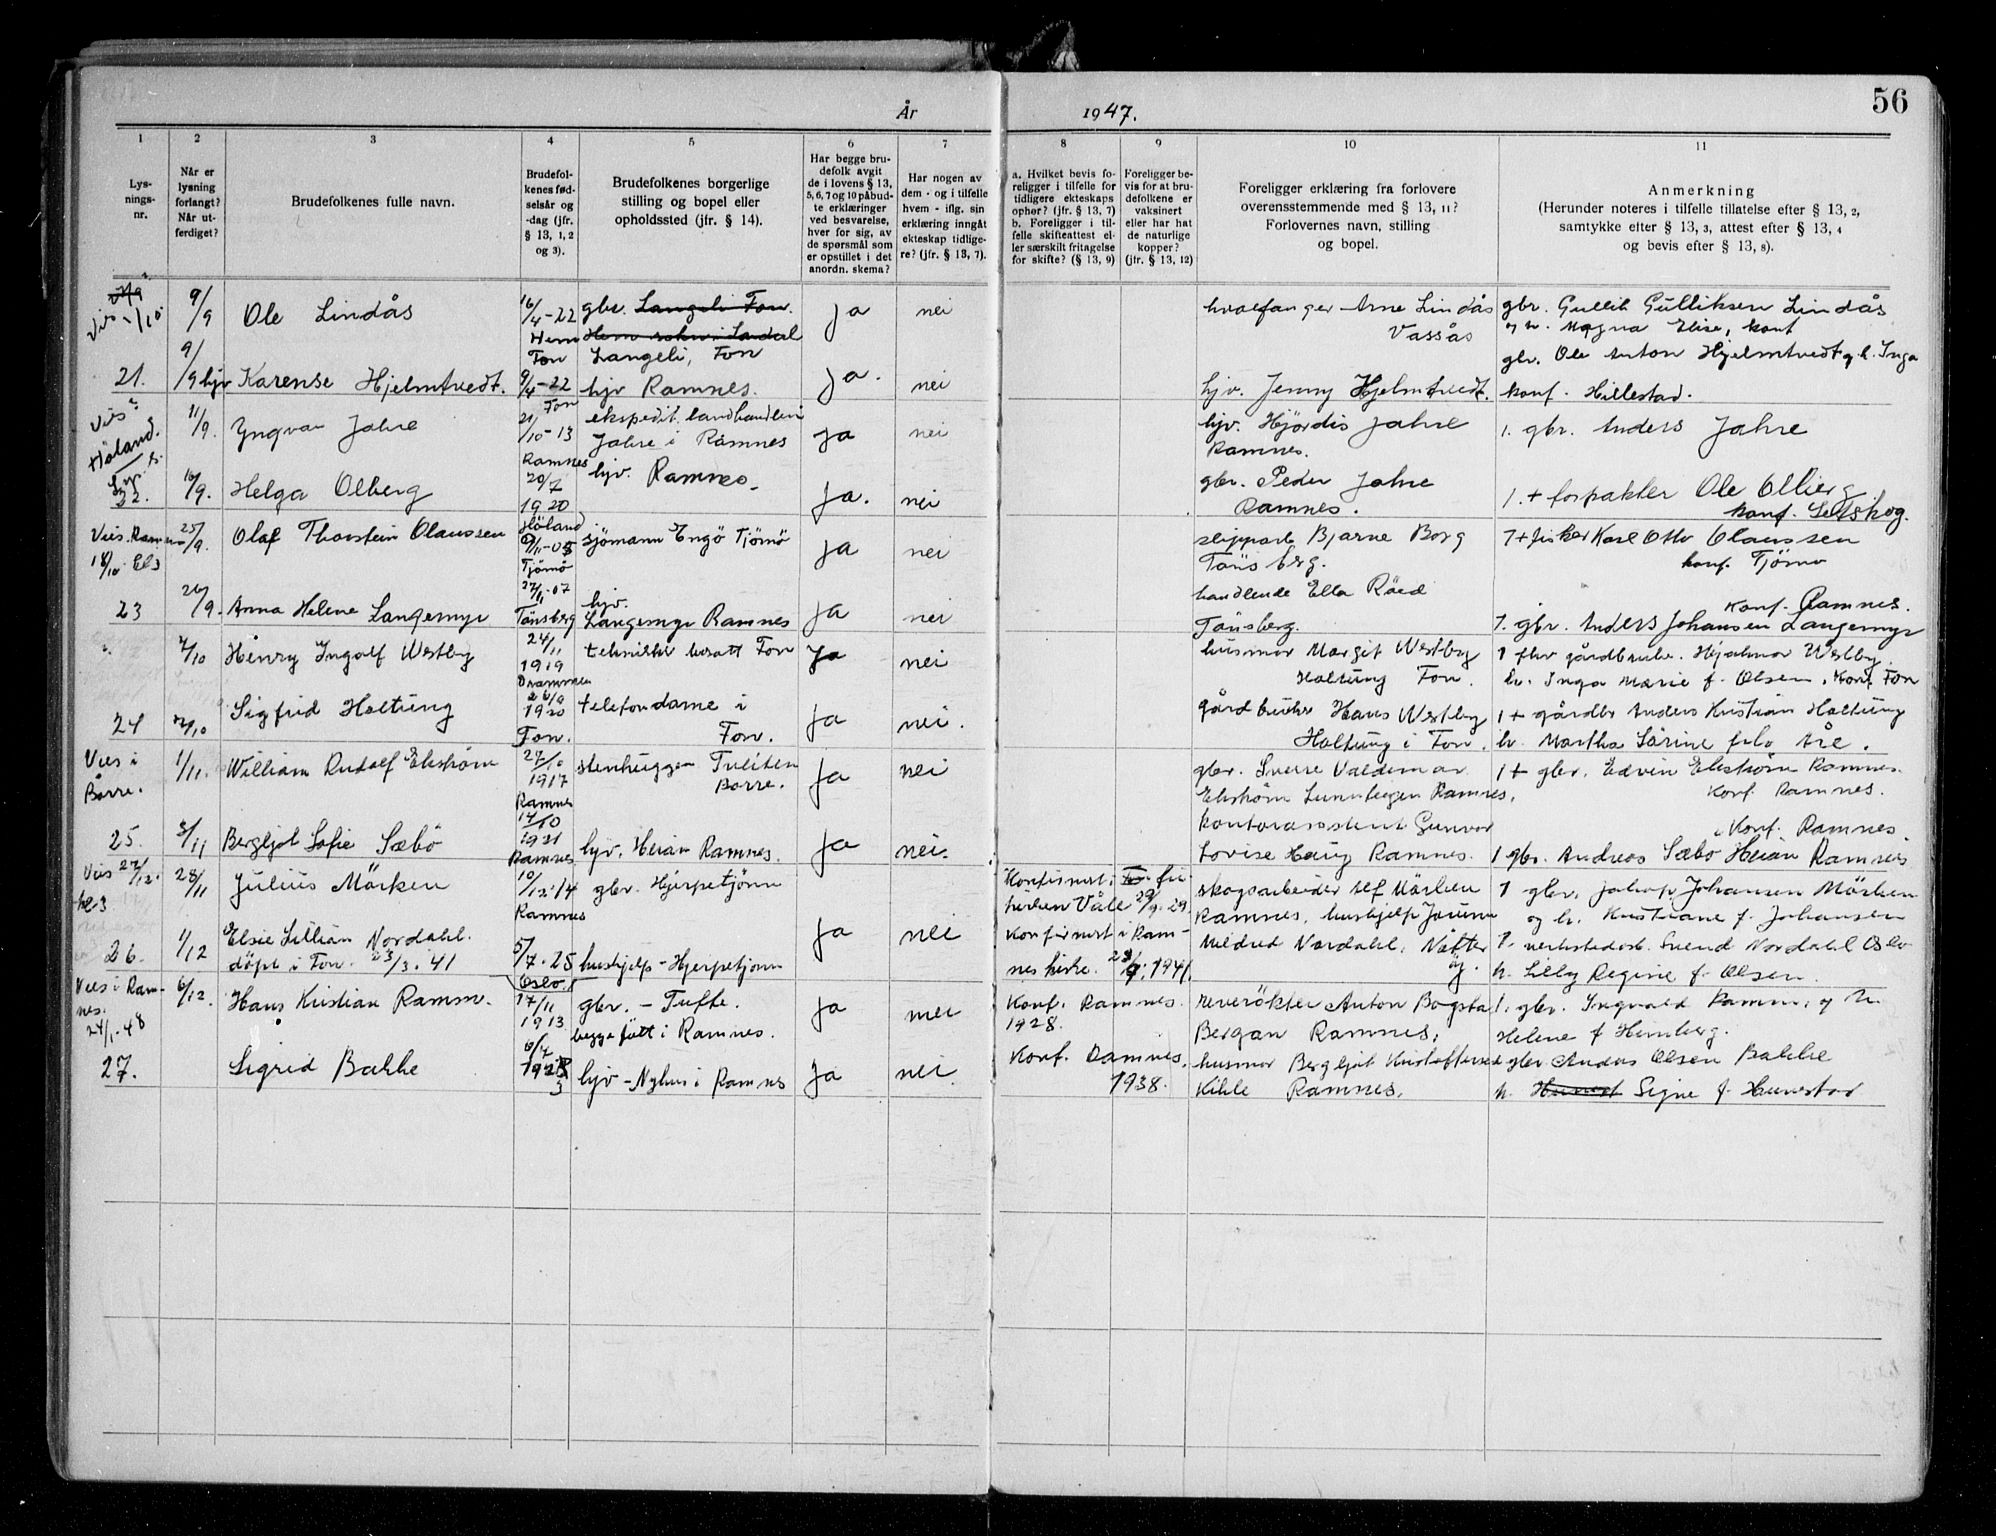 56
År 1947.
1 2 3 4 5 6 7 8 9 10 11
Lys-
nings-
nr.
Når er
lysning
forlangt?
Når ut-
ferdiget?
Brudefolkenes fulle navn.
Brudefol-
kenes fød-
selsår og
-dag (jfr.
§ 13, 1, 2
og 3).
Brudefolkenes borgerlige
stilling og bopel eller
opholdssted (jfr. § 14).
Har begge bru-
defolk avgit
de i lovens § 13,
5, 6, 7 og 10 påbud-
te erklæringer
ved besvarelse,
hver for sig, av
de spørsmål som
er opstillet i det
anordn. skema?
Har nogen av
dem - og i tilfelle
hvem - iflg. sin
erklæring inngått
ekteskap tidlige-
re? (jfr. § 13, 7).
a. Hvilket bevis fo-
religger i tilfelle for
tidligere ekteskaps
ophør? (jfr. § 13, 7)
b. Foreligger i til-
felle skifteattest el-
ler særskilt fritagelse
for skifte? (§ 13, 9)
Foreligger be-
vis for at bru-
defolkene er
vaksinert
eller har hat
de naturlige
kopper?
(jfr. § 13, 12)
Foreligger erklæring fra forlovere
overensstemmende med § 13, 11?
Forlovernes navn, stilling
og bopel.
Anmerkning
(Herunder noteres i tilfelle tillatelse efter § 13, 2,
samtykke efter § 13, 3, attest efter § 13, 4
og bevis efter § 13, 8).
9/9 Ole Lindås 16/4-22 gbr. Langeli Fon. ja nei hvalfanger Arne Lindås gbr. Gullik Gulliksen Lindås
Hem Vassås og h. Magna Elise, konf
Fon Langeli, Fon gbr. Ole Anton Hjelmtvedt og h. Inga
21. 9/9 hjv Karense Hjelmtvedt. 9/4-22 hjv Ramnes. ja. nei hjv. Jenny Hjelmtvedt. konf. Hillestad.
Fon
Høland. 11/9. Yngvar Jahre 21/10-13 ekspedit. landhandleri ja nei hjv. Hjördis Jahre 1. gbr. Anders Jahre
Jahre i Ramnes Ramnes.
Ramnes
22. 16/9. Helga Olberg 20/7 1920 hjv. Ramnes. ja. nei gbr. Peder Jahre Ramnes. 1. + forpakter Ole Olberg
Höland konf. Setskog.
Vies. Ramnes 18/10 25/9. Olaf Thorstein Olaussen sjömann Engö Tjömö ja nei Bjarne Borg + fisker Karl Otto Olaussen
Tjömö Tönsberg. konf. Tjømø
23 26/9. Anna Helene Langemyr 27/11-07 hjv. ja nei handlende Ella Röed konf. Ramnes.
Tönsberg Langemyr Ramnes Tönsberg. gbr. Anders Johansen Langemyr
7/10 Henry Ingolf Westby 24/11 1919 tekniker Fon ja nei husmor Margit Westby gårdbruker. Hjalmar Westby
Drammen Holtung Fon. h. Inga Marie f. Olsen. Konf. Fon
24 7/10 Sigfrid Holtung 1920 telefondame i ja nei. gårdbruker Hans Westby 1 + gårdbr Anders Kristian Holtung
Fon. Fon. Holtung i Fon. h. Martha Sörine
Vies i Borre. 1/11. William Rudolf Ekström 27/10 1917 stenhugger Borre. ja nei gbr. Sverre Valdemar 1 + gbr. Edvin Ekström Ramnes.
Ramnes Ekström Ramnes, Konf. Ramnes.
25. 3/11 Bergljot Sofie Sæbö 14/10 1921 hjv. Heian Ramnes. ja nei. kontorassistent Gunvor Konf. Ramnes.
Ramnes Lovise Haug Ramnes. 1 gbr. Andreas Sæbö Heian Ramnes
Vies 27/12. 28/11 Julius Mörken 10/12-14 gbr. Hjerpetjönn Konfirmert i fri- skogsarbeider Mörken 1 gbr. Jakob Johansen Mörken
Ramnes kirken Våle Ramnes, hushjelp og h. Kristiane f. Johansen
26. 1/12 Elsie Lillian Nordahl. 5/7-25 hushjelp - Hjerpetjönn ja nei konfirmert i Ram- Mildred Nordahl, Nötter- Svend Nordahl Oslo
döpt i Fon. 23/3. 41 Oslo. nes kirke. 1941. öy. h. Lilly Regine f. Olsen.
Vies i Ram-
nes. 24/1-48 6/12. Hans Kristian Ramm. 17/11 1913 gbr. - Tufte. ja nei Konf. Ramnes. 1928. reverökter Anton Bogstad 1. gbr. Ingvald Ramm, og h.
begge født i Ramnes. Bergan Ramnes, Helene f. Hemberg.
27. Sigrid Bakke 6/7 hjv - Nyhus i Ramnes ja nei Konf. Ramnes. husmor Bergljot Kristoffersen gbr Anders Olsen Bakke
1938. Kihle Ramnes. h. Signe f. Hunestad